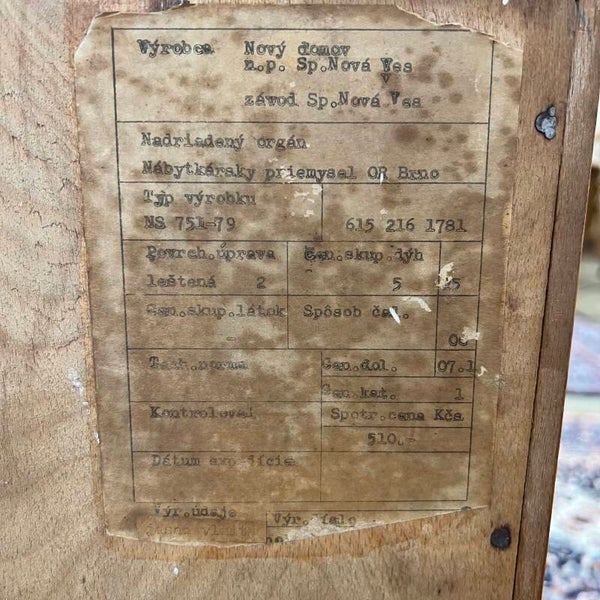 Výrobca Nový domov
n.p. Sp.Nová Ves
závod Sp.Nová Ves
Nadriadený orgán
Nábytkársky priemysel OR Brno
Typ výrobku
NS 751-79 615 216 1781
Povrch.úprava Cen.skup.dýh
leštená 2 5
Cen.skup.látok Spôsob čal.
-
Tech.norma Cen.dol. 07.1
Cen.kat. 1
Kontroloval Spotr.cena Kčs
510.-
Dátum
Výr.údaje Výr.číslo